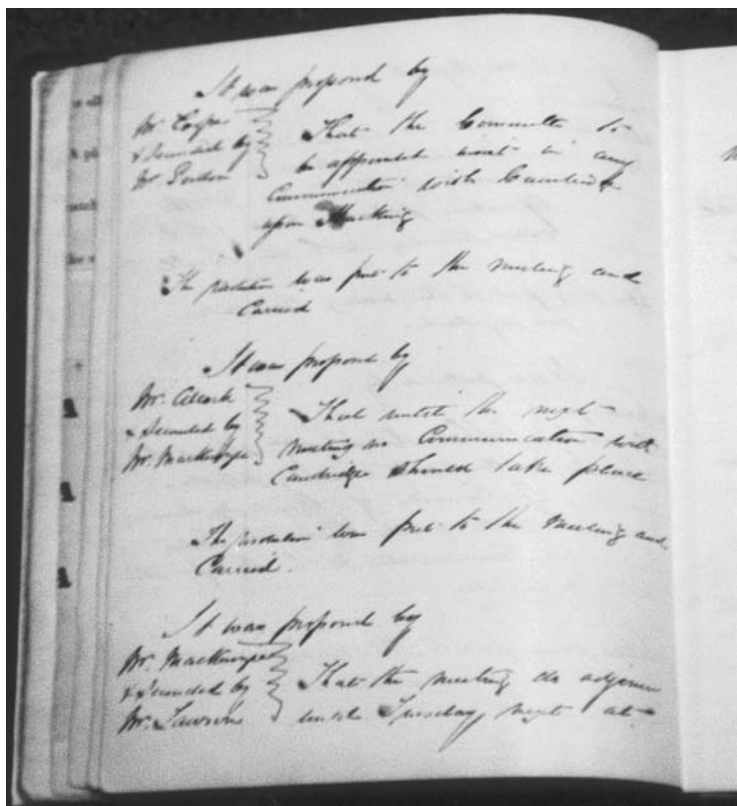 It was proposd by
Mr. Cooper
& Seconded by
Mr. Perdon
That the Committee to
be appointed assist in any
Communication with Cambridge
upon Skulling
The resolution was put to the meeting and
Carried
It was proposd by
Mr. Allcock
& Seconded by
Mr. Mackenzie
That until the next
meeting no Communication with
Cambridge should take place
The resolution was put to the meeting and
Carried.
It was proposd by
Mr. Mackenzie
& Seconded by
Mr. Lawson
That the meeting do adjourn
until Tuesday next at